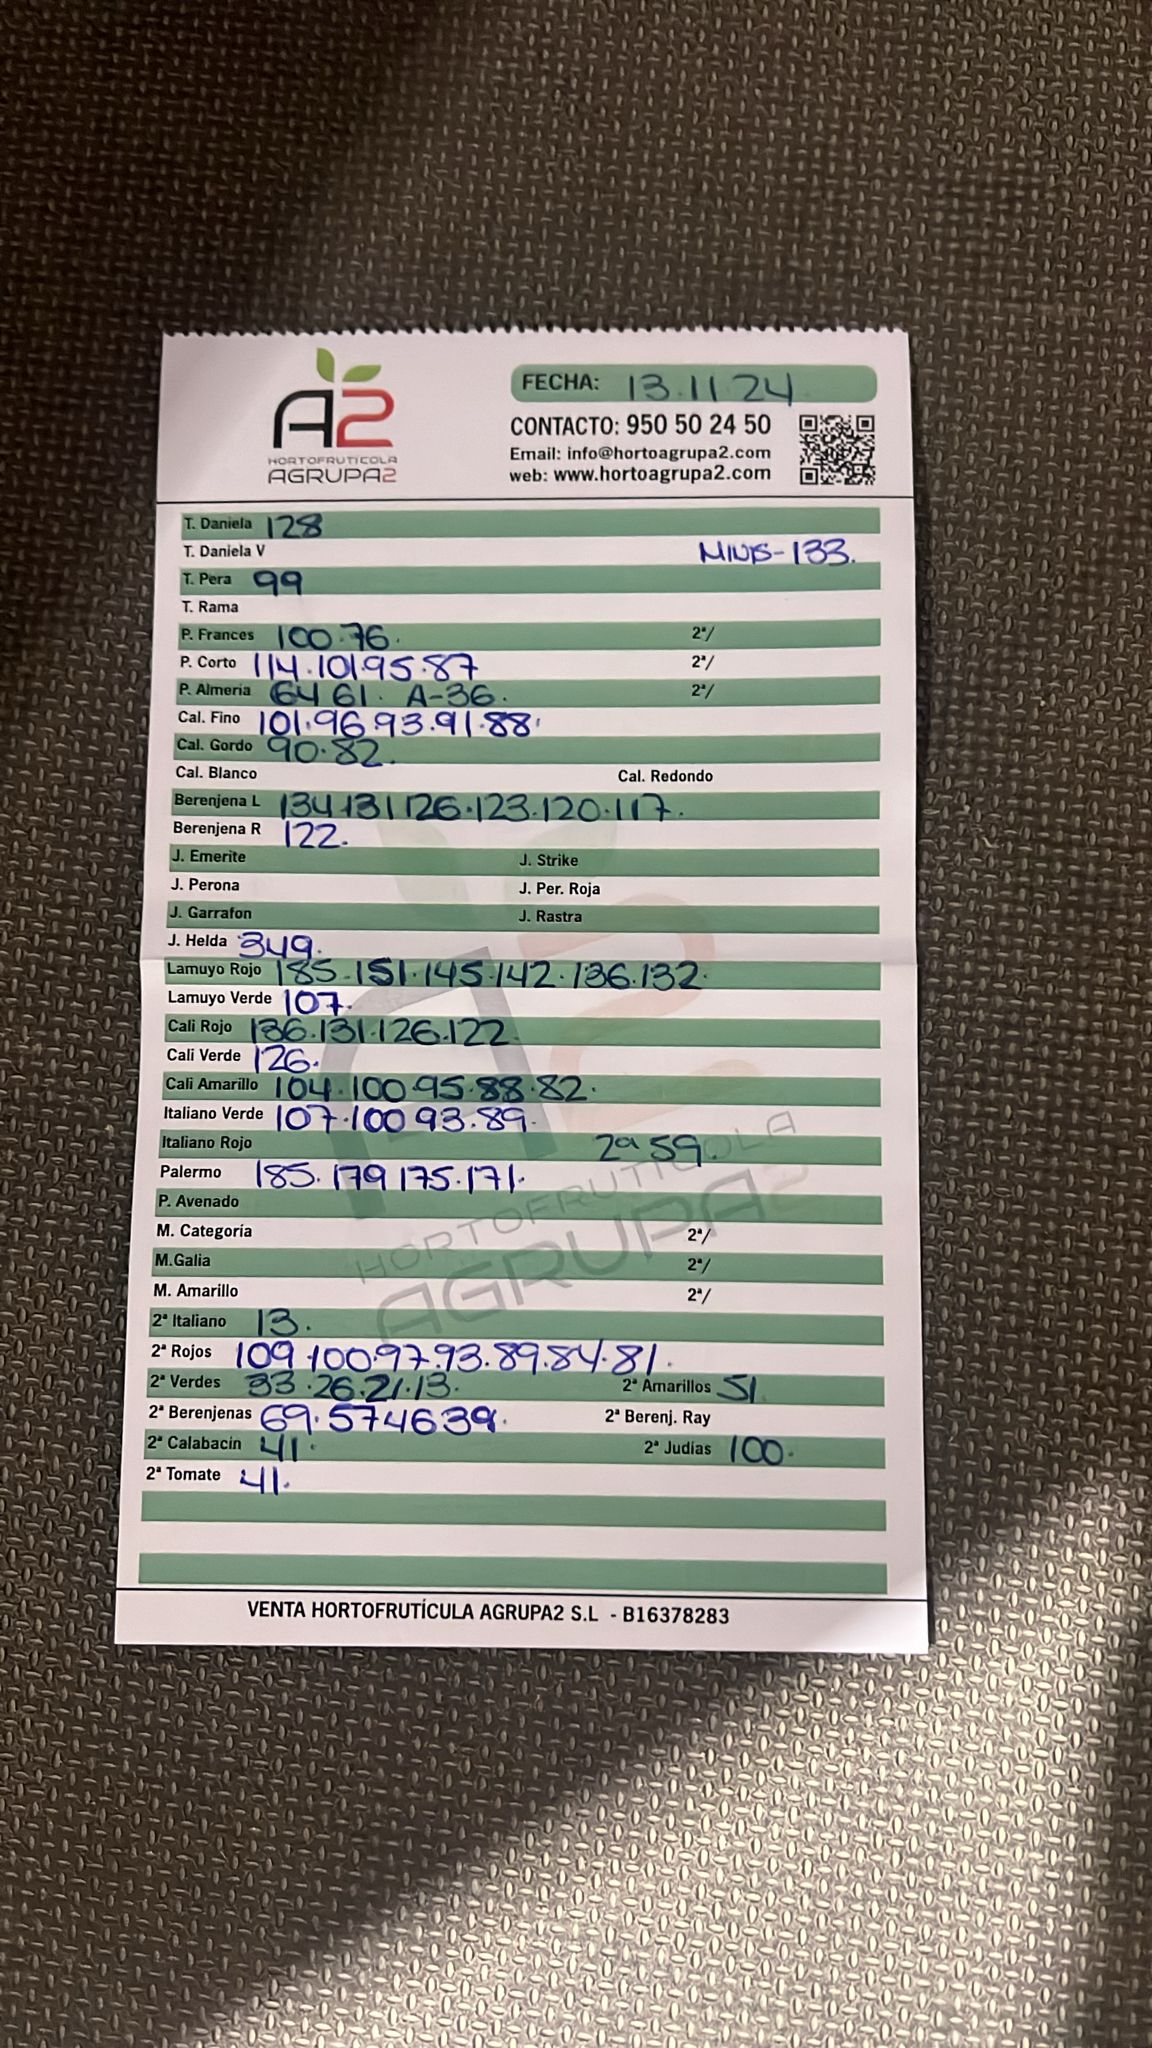 A2
HORTOFRUTÍCOLA
AGRUPA2
FECHA: 13.11.24
CONTACTO: 950 50 24 50
Email: info@hortoagrupa2.com
web: www.hortoagrupa2.com
T. Daniela 128
T. Daniela V MINIS-133.
T. Pera 99
T. Rama
P. Frances 100.76. 2ª/
P. Corto 114.101.95.87 2ª/
P. Almería 64 61. A-36. 2ª/
Cal. Fino 101.96.93.91.88.
Cal. Gordo 90.82.
Cal. Blanco Cal. Redondo
Berenjena L 134.131.126.123.120.117.
Berenjena R 122.
J. Emerite J. Strike
J. Perona J. Per. Roja
J. Garrafon J. Rastra
J. Helda 349.
Lamuyo Rojo 185.151.145.142.136.132.
Lamuyo Verde 107.
Cali Rojo 136.131.126.122
Cali Verde 126.
Cali Amarillo 104.100.95.88.82.
Italiano Verde 107.100 93.89.
Italiano Rojo 2ª 59.
Palermo 185.179 175.171.
P. Avenado
M. Categoría 2ª/
M.Galia 2ª/
M. Amarillo 2ª/
2ª Italiano 13.
2ª Rojos 109.100.97.93.89.84.81.
2ª Verdes 33.26.21.13. 2ª Amarillos 51
2ª Berenjenas 69.57 46 39. 2ª Berenj. Ray
2ª Calabacín 41. 2ª Judías 100.
2ª Tomate 41.
HORTOFRUTÍCOLA
AGRUPA2
VENTA HORTOFRUTÍCULA AGRUPA2 S.L - B16378283